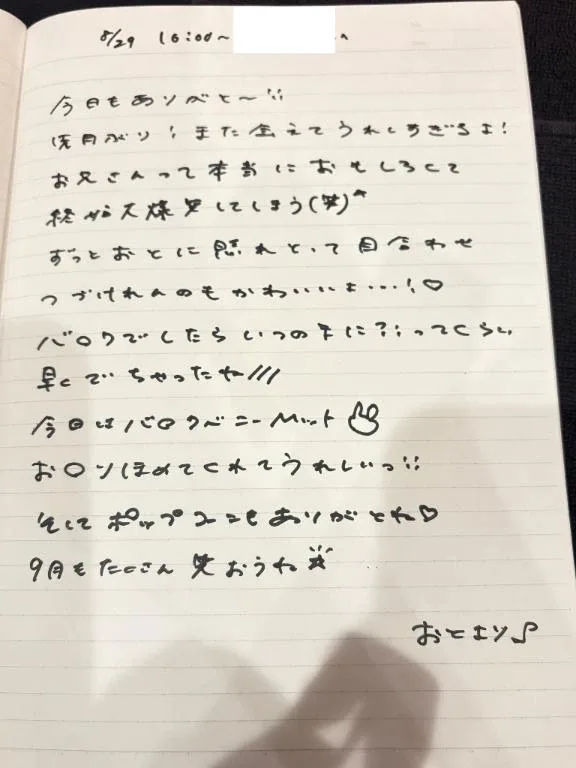 8/29 16:00~
今日もありがと〜!!
満月がり！また会えてうれしすぎるよ！
お兄さんって本当におもしろくて
終始大爆笑してしまう(笑)
ずっとおとに照れとって目合わせ
つづけれんのもかわいいよ…!♡
バ〇クでしたらいつの間に?!ってくらい
早くでちゃったね///
今日はバ〇クバニーMット
お〇ンほめてくれてうれしいっ!!
そしてポップコーンもありがとね♡
9月もたくさん笑おうね☆
おとより♪